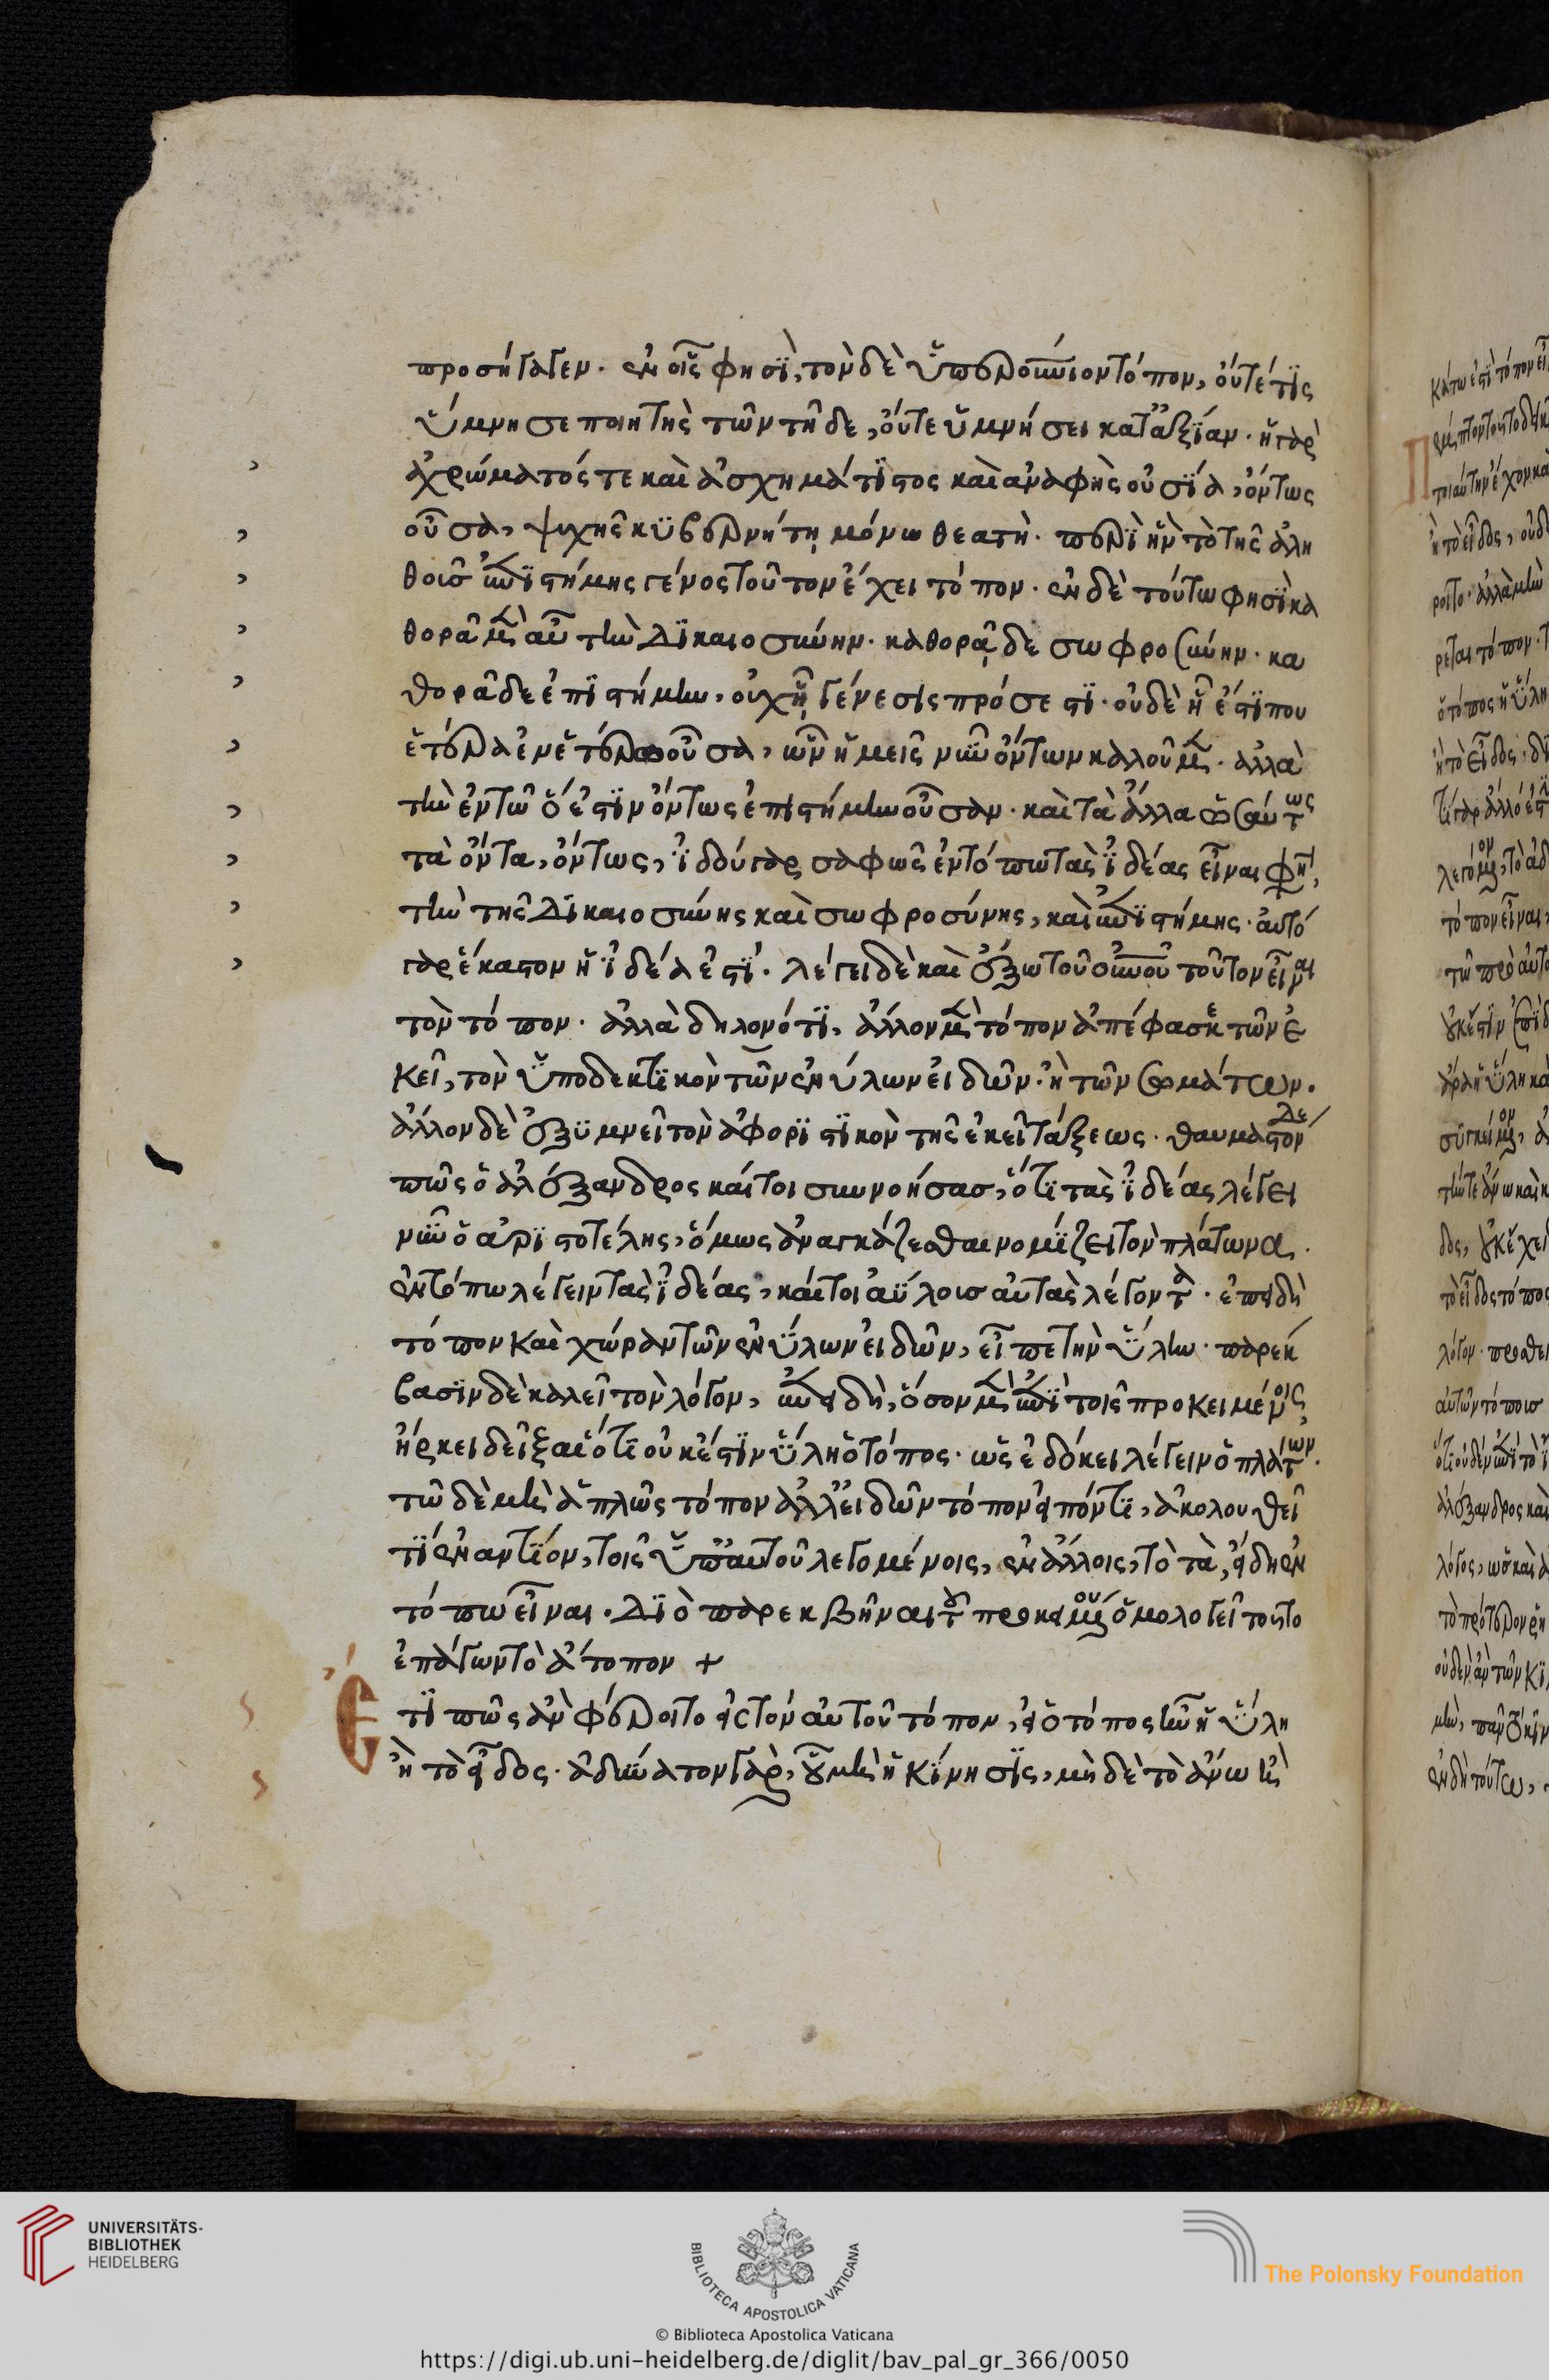 προσήγαγεν. ἐν οἷς φησὶ, τὸν δὲ ὑπερουράνιον τόπον, οὔτέ τις
ὕμνησε ποιητὴς τῶν τῇδε, οὔτε ὑμνήσει κατ' ἀξίαν. ἡ γὰρ
ἀχρώματός τε καὶ ἀσχημάτιστος καὶ ἀναφὴς οὐσία, ὄντως
οὖσα, ψυχῆς κυβερνήτῃ μόνω θεατὴ. περὶ ἣν τὸ τῆς ἀλη
θοῦς ἐπιστήμης γένος τοῦτον ἔχει τόπον. ἐν δὲ τούτω φησὶ κα
θορᾶ μὲν αὖ τὴν δικαιοσύνην. καθορᾷ δε σωφροσύνην. κα
θορᾶ δε ἐπιστήμην, οὐχ ἧ γένεσις πρόσεστι. οὐδὲ ἥ ἐστί που
ἑτέρα ἐν ἑτέρω οὖσα, ὧν ἡμεῖς νῦν ὄντων καλοῦμεν. ἀλλὰ
τὴν ἐν τῶ ὅ ἐστιν ὄντως ἐπιστήμην οὖσαν. καὶ τὰ ἄλλα ὡσαύτως
τὰ ὄντα, ὄντως, ἰδοὺ γὰρ σαφῶς ἐν τόπω τὰς ἰδέας εἶναι φησὶ,
τὴν τῆς δικαιοσύνης καὶ σωφροσύνης, καὶ ἐπιστήμης. αὐτό
γὰρ ἕκαστον ἡ ἰδέα ἐστί. λέγει δὲ καὶ ἔξω τοῦ οὐρανοῦ τοῦτον εἶναι
τὸν τόπον. ἀλλὰ δηλονότι, ἄλλον μὲν τόπον ἀπέφασκε τῶν ἐ
κεῖ, τὸν ὑποδεκτικὸν τῶν ἐνύλων εἰδῶν. ἢ τῶν σωμάτων.
ἄλλον δὲ ἐξυμνεῖ τὸν ἀφοριστικὸν τῆς ἐκεῖ τάξεως. θαυμαστὸν δε
πῶς ὁ ἀλέξανδρος καίτοι συννοήσας, ὅτι τὰς ἰδέας λέγει
νῦν ὁ ἀριστοτέλης, ὅμως ἀναγκάζεσθαι νομίζει τὸν πλάτωνα.
ἐν τόπω λέγειν τὰς ἰδέας, καίτοι ἀΰλοις αὐτὰς λέγοντα. ἐπειδὴ
τόπον καὶ χώραν τῶν ἐνύλων εἰδῶν, εἶπε τὴν ὕλην. παρέκ
βασιν δὲ καλεῖ τὸν λόγον, ἐπειδὴ, ὅσον μὲν ἐπὶ τοῖς προκειμένοις,
ἤρκει δεῖξαι ὅτι οὐκ ἔστιν ὕλη ὁ τόπος. ὡς ἐδόκει λέγειν ὁ πλάτων.
τῶ δὲ μὴ ἁπλῶς τόπον ἀλλ' εἰδῶν τόπον εἰπόντι, ἀκολουθεῖ
τί ἐναντίον, τοῖς ὑπ' αὐτοῦ λεγομένοις, ἐν ἄλλοις, τὸ τὰ, εἴδη ἐν
τόπω εἶναι. διὸ παρεκβῆναι τὰ προκείμενον ὁμολογεῖ τοῦτο
ἐπάγων τὸ ἄτοπον +
Ἔτι πῶς ἂν φέροιτο εἰς τὸν αὐτοῦ τόπον, εἰ ὁ τόπος ἦν ἡ ὕλη
ἢ τὸ εἶδος. ἀδύνατον γὰρ, οὗ μὴ ἡ κίνησις, μὴ δὲ τὸ ἄνω καὶ
UNIVERSITÄTS-
BIBLIOTHEK
HEIDELBERG
BIBLIOTECA APOSTOLICA VATICANA
The Polonsky Foundation
© Biblioteca Apostolica Vaticana
https://digi.ub.uni-heidelberg.de/diglit/bav_pal_gr_366/0050